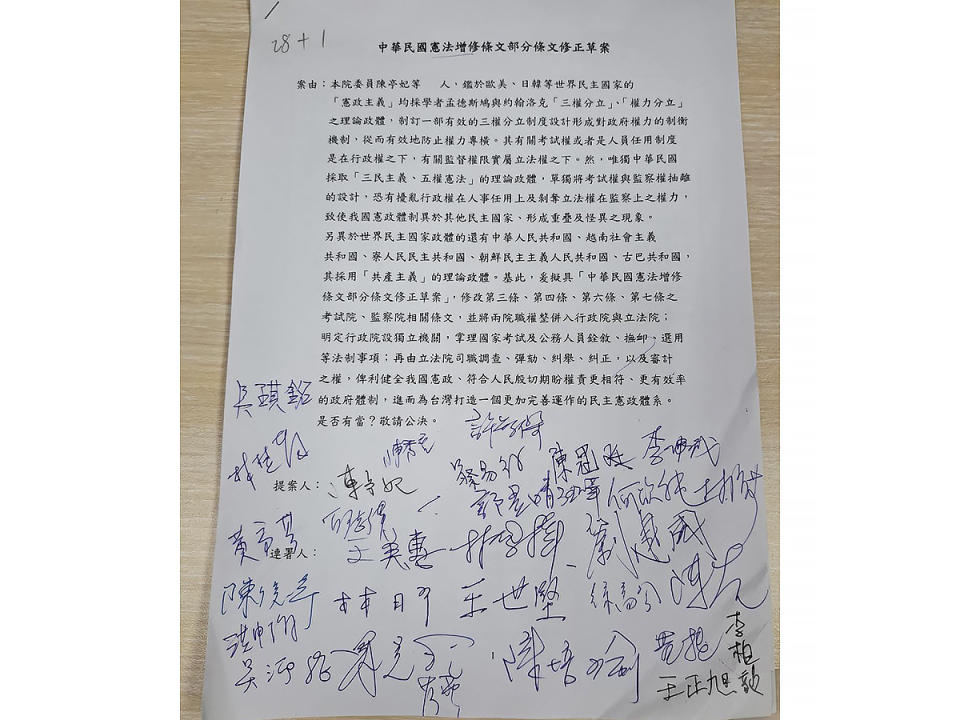 28+1
中華民國憲法增修條文部分條文修正草案
案由：本院委員陳亭妃等　　人，鑑於歐美、日韓等世界民主國家的
「憲政主義」均採學者孟德斯鳩與約翰洛克「三權分立」、「權力分立」
之理論政體，制訂一部有效的三權分立制度設計形成對政府權力的制衡
機制，從而有效地防止權力專橫。其有關考試權或者是人員任用制度
是在行政權之下，有關監督權限實屬立法權之下。然，唯獨中華民國
採取「三民主義、五權憲法」的理論政體，單獨將考試權與監察權抽離
的設計，恐有擾亂行政權在人事任用上及剝奪立法權在監察上之權力，
致使我國憲政體制異於其他民主國家、形成重疊及怪異之現象。
另異於世界民主國家政體的還有中華人民共和國、越南社會主義
共和國、寮人民民主共和國、朝鮮民主主義人民共和國、古巴共和國，
其採用「共產主義」的理論政體。基此，爰擬具「中華民國憲法增修
條文部分條文修正草案」，修改第三條、第四條、第六條、第七條之
考試院、監察院相關條文，並將兩院職權整併入行政院與立法院；
明定行政院設獨立機關，掌理國家考試及公務人員銓敘、撫卹、選用
等法制事項；再由立法院司職調查、彈劾、糾舉、糾正，以及審計
之權，俾利健全我國憲政、符合人民殷切期盼權責更相符、更有效率
的政府體制，進而為台灣打造一個更加完善運作的民主憲政體系。
是否有當？敬請公決。
吳琪銘
提案人：陳亭妃
王美惠
連署人：
陳俊宇
林月琴
王世堅
劉建國
吳沛憶
陳培瑜
王正旭
李柏毅